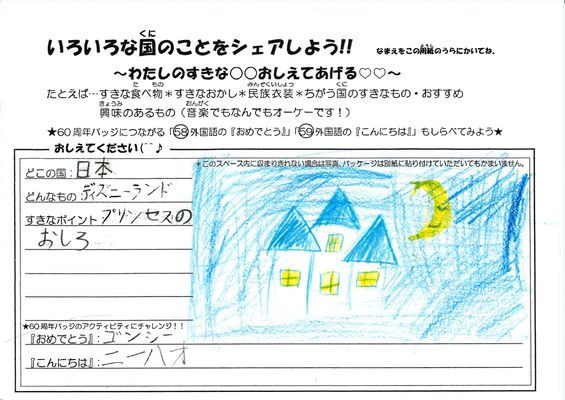 いろいろな国のことをシェアしよう!! なまえをこの用紙のうらにかいてね。
～わたしのすきな○○おしえてあげる♡♡～
たとえば…すきな食べ物＊すきなおかし＊民族衣装＊ちがう国のすきなもの・おすすめ
興味のあるもの（音楽でもなんでもオーケーです！）
★60周年バッジにつながる「58外国語の『おめでとう』」「59外国語の『こんにちは』」もしらべてみよう★
おしえてください(＾＾♪
＊このスペース内に収まりきれない場合は写真、パッケージは別紙に貼り付けていただいてもかまいません。
どこの国：日本
どんなもの ディズニーランド
すきなポイント プリンセスの
おしろ
★60周年バッジのアクティビティにチャレンジ！！
『おめでとう』：ゴンシー
『こんにちは』：ニーハオ